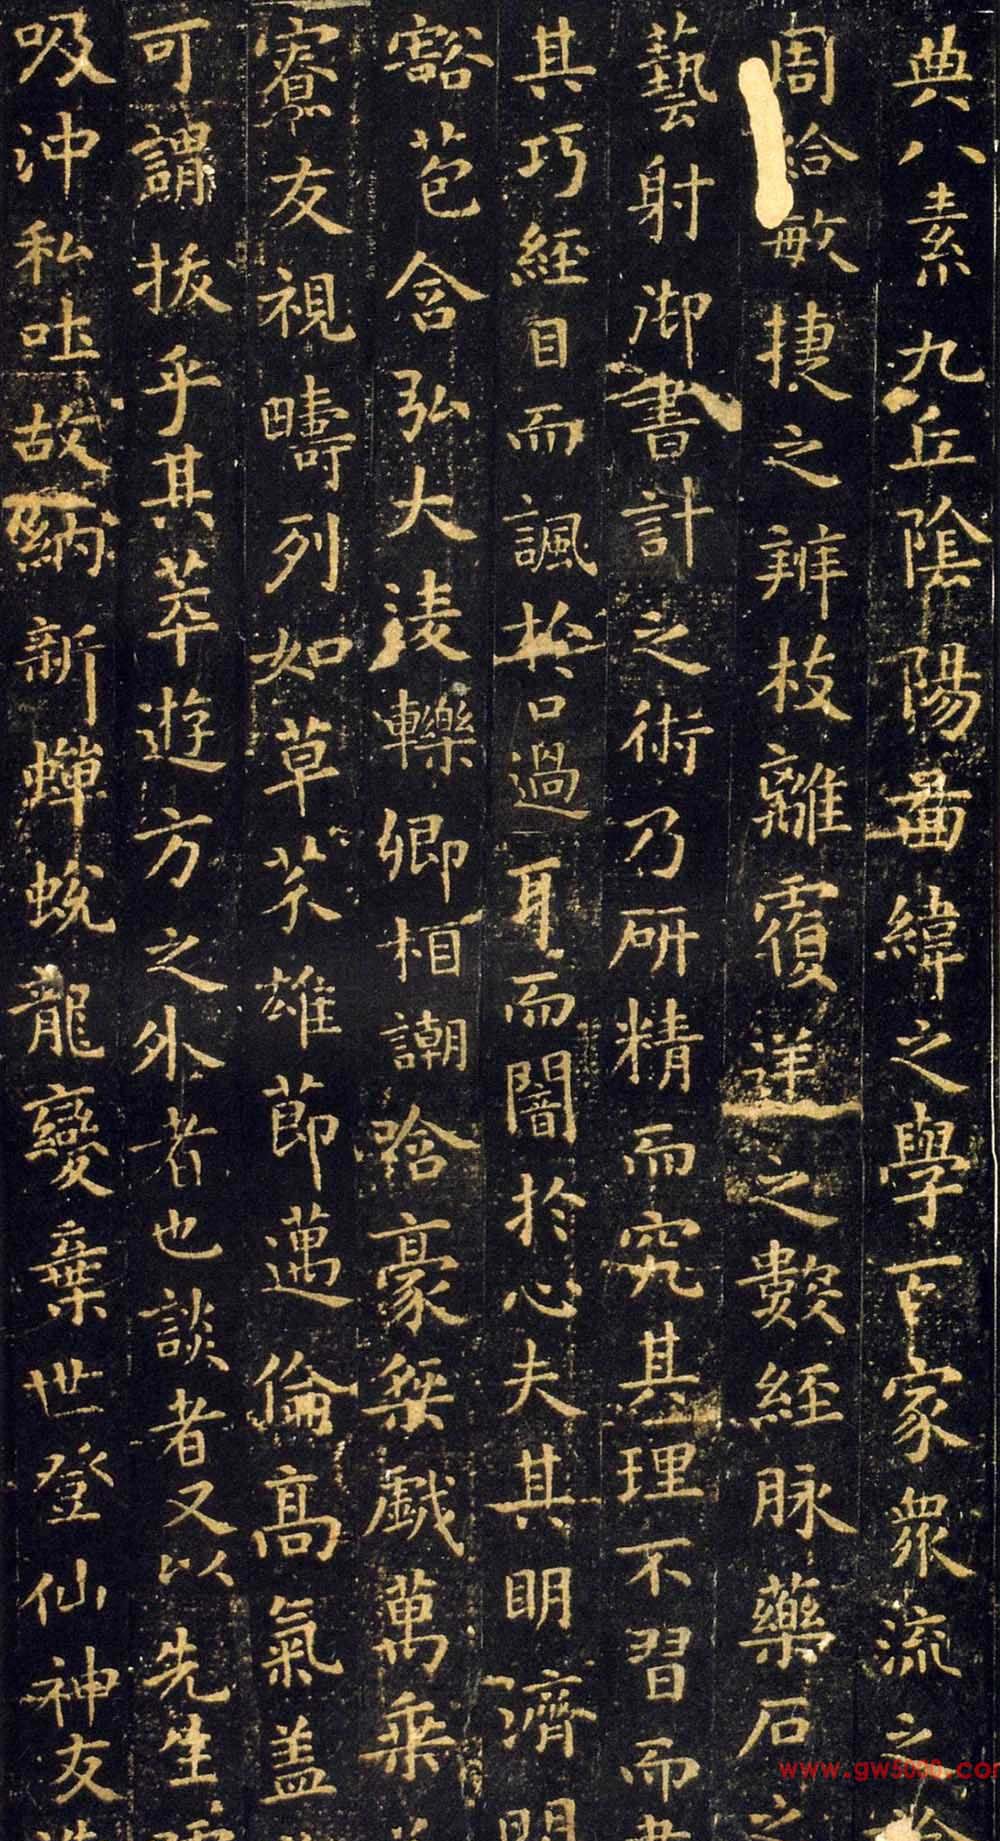 典八素九丘陰陽啚緯之學百家衆流之論
周給敏捷之辨枝離覆逆之數經脉藥石之
藝射御書計之術乃研精而究其理不習而盡
其巧經目而諷於口過耳而闇於心夫其明濟開
豁苞含弘大淩轢卿相謿哈豪桀戯萬乗若
寮友視疇列如草芥雄節邁倫高氣盖
可謂拔乎其萃遊方之外者也談者又以先生嘘
吸沖私吐故納新蟬蛻龍變棄世登仙神友造
www.gw5000.com